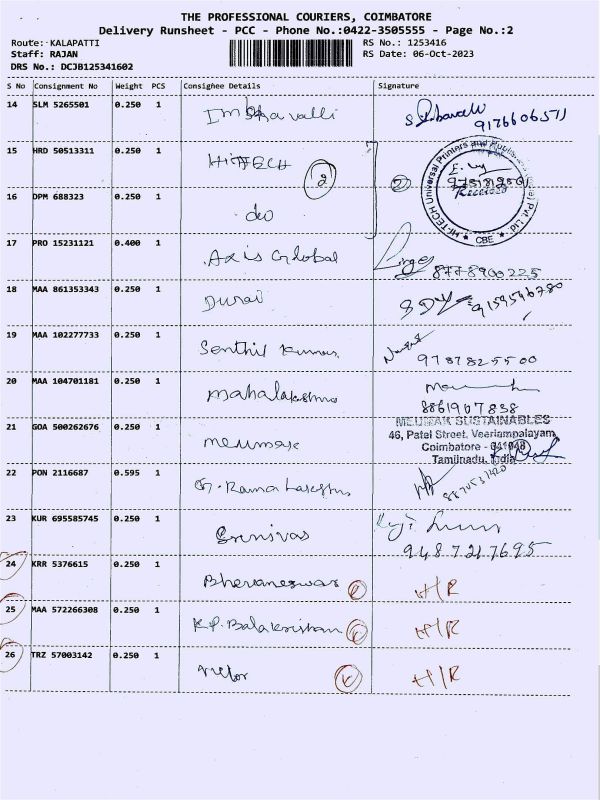 THE PROFESSIONAL COURIERS, COIMBATORE
Delivery Runsheet - PCC - Phone No.:0422-3505555 - Page No.:2
Route: KALAPATTI RS No.: 1253416
Staff: RAJAN RS Date: 06-Oct-2023
DRS No.: DCJB125341602
S No Consignment No Weight PCS Consighee Details Signature
14 SLM 5265501 0.250 1
9176606571
15 HRD 50513311 0.250 1 HITECH 2
HI-TECH Universal Printers and Pvt. Ltd. CBE
Received
16 DPM 688323 0.250 1 do
17 PRO 15231121 0.400 1 Axis Global
8778900225
18 MAA 861353343 0.250 1 Durai
9159596780
19 MAA 102277733 0.250 1 Senthil Kumar
9787825500
20 MAA 104701181 0.250 1 mahalakshmi
8861907838
21 GOA 500262676 0.250 1 meumax
SUSTAINABLES
46, Patel Street, Veeriampalayam,
Coimbatore - 641048
Tamilnadu, India
22 PON 2116687 0.595 1
23 KUR 695585745 0.250 1 Srinivas
9487217695
24 KRR 5376615 0.250 1 H/R
25 MAA 572266308 0.250 1 K.P. Balakrishnan H/R
26 TRZ 57003142 0.250 1 H/R